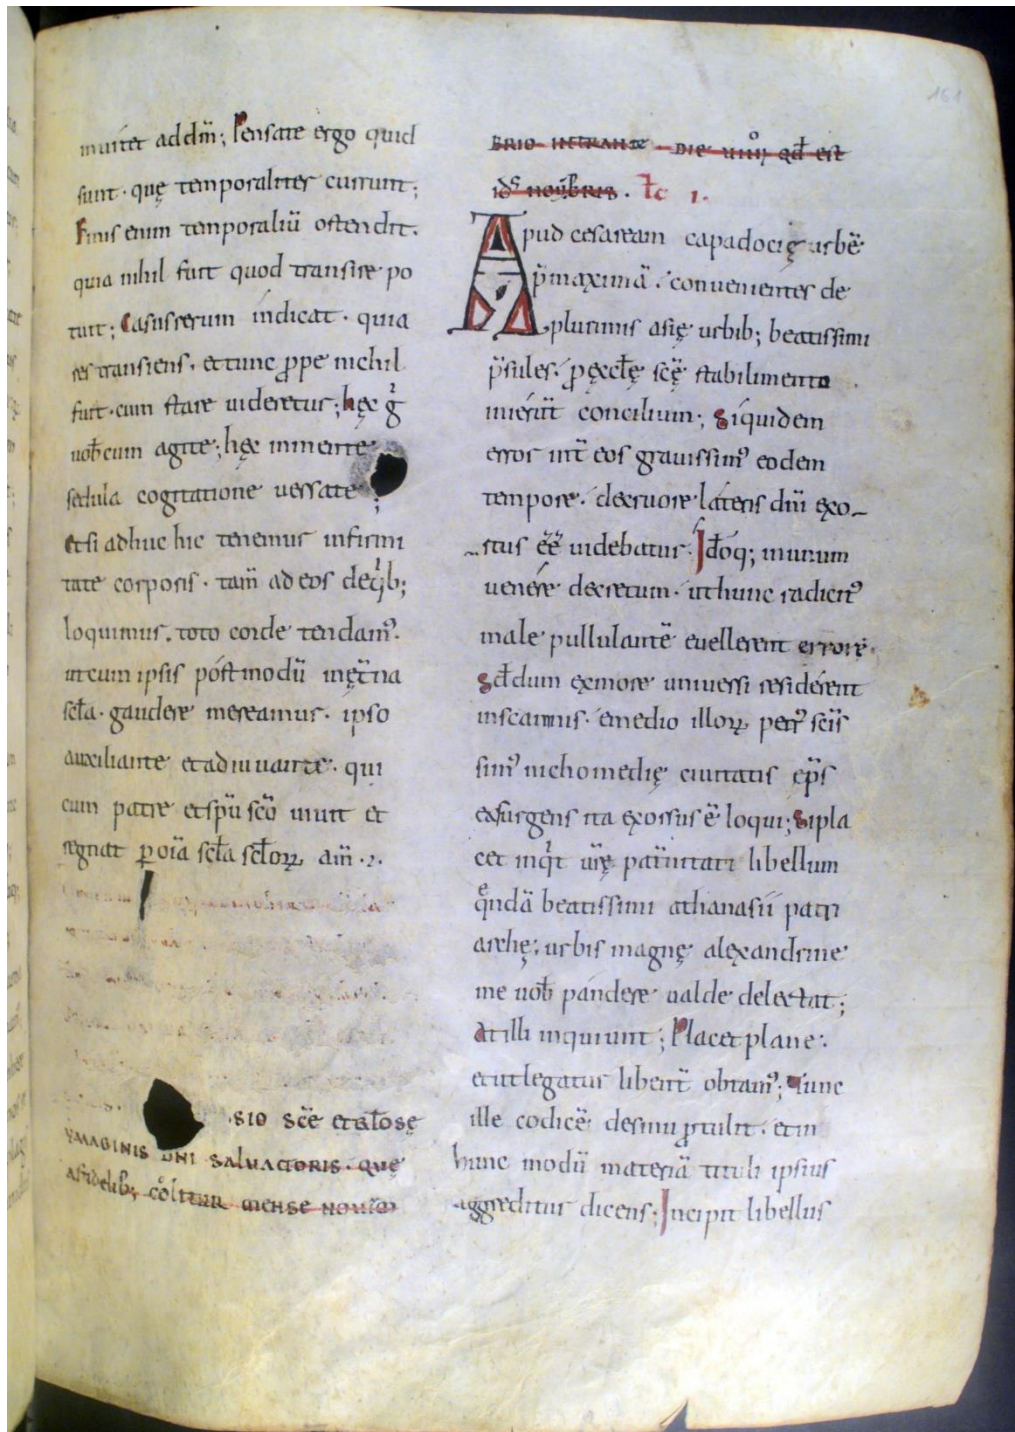 161
muitet addm̄; Pensate ergo quid
sunt · quę temporaliter currunt;
Finis enim temporaliū ostendit.
quia nihil fuit quod transire po
tuit; Casus rerum indicat · quia
res transiens · et tunc ꝓpe nichil
fuit · cum stare uideretur; hęc g̍
uob̄cum agite; hęc in mente
sedula cogitatione uersate;
et si adhuc hic tenemur infirmi
tate corporis · tam̄ ad eos de q̍b;
loquimur. toto corde tendam᾿.
ut cum ipsis post modū inęt̄na
scl̄a · gaudere mereamur · ipso
auxiliante et adiuuante · qui
cum patre et sp̄u scō uiuit et
regnat ꝑ oīa scl̄a scl̄oꝝ am̄ ·
sio sc̄e et gl̄osę
ymaginis dn̄i saluatoris · quę
a fidelib; colitur mense nouē
brio intrante · die uiiii qd̄ est
id᾿ noub̄ris. Lc̄ 1.
Apud cesaream capadocię urbē
p̄maximā · conuenientes de
plurimis asię urbib; beatissimi
p̄sules · ꝓ ęccl̄ę sc̄ę stabilimento
inierūt concilium; Siquidem
error int̄ eos grauissim᾿ eodem
tempore · decruore lateris dn̄i exo
rtus ēē uidebatur. Id̄oq; in unum
uenére decretum · ut hunc radicit᾿
male pullulantē euellerent errorē.
Sd̄ dum ex more uniuersi residérent
in scannis · e medio illoꝝ petr᾿ sc̄is
sim᾿ nichomedię ciuitatis ep̄s
exsurgens ita exorsus ē loqui; Si pla
cet inq̍t ur̄ę pat̄nitati libellum
quēndā beatissimi athanasii patri
archę · urbis magnę alexandrine
me uob̄ pandere ualde delectat;
At illi inquiunt; Placet plane ·
et ut legatur libent̄ obtam᾿; Tunc
ille codicē desinu ꝓtulit · et in
hunc modū materiā tituli ipsius
aggreditur dicens; Incipit libellus